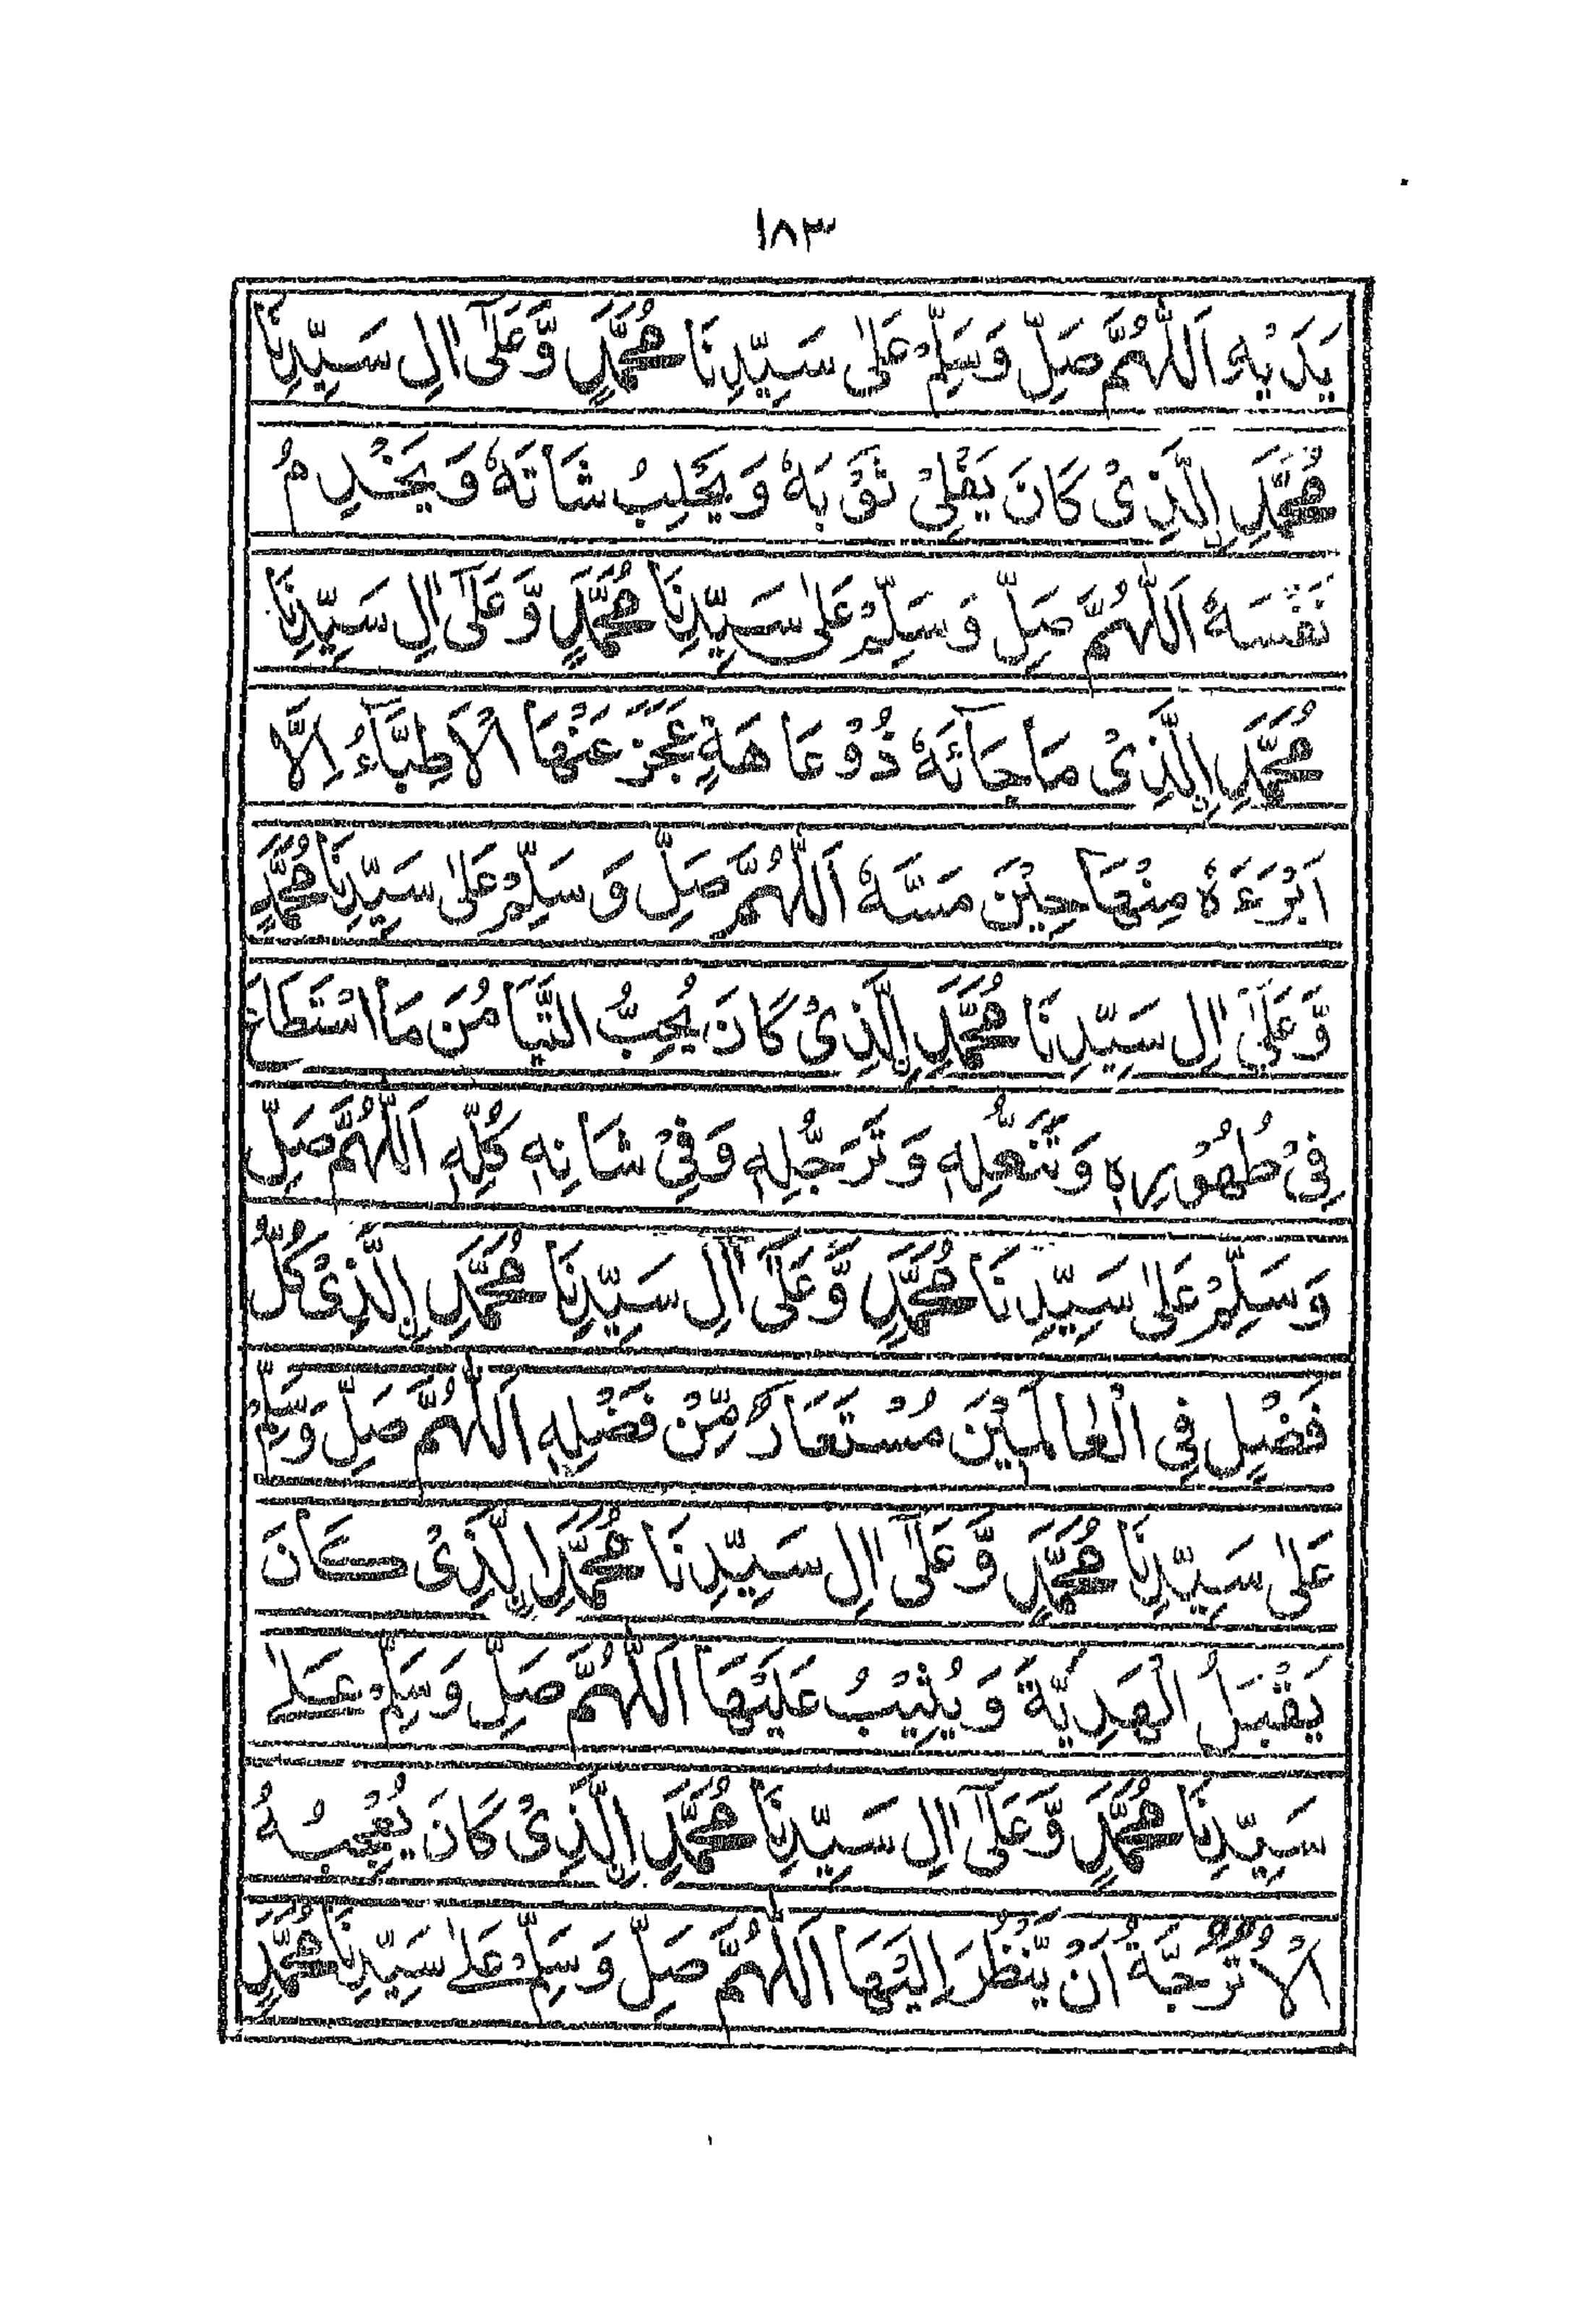 ١٨٣
يَدَيْهِ اَللّٰهُمَّ صَلِّ وَسَلِّمْ عَلٰى سَيِّدِنَا مُحَمَّدٍ وَّعَلٰٓى اٰلِ سَيِّدِنَا
مُحَمَّدِ اِلَّذِىْ كَانَ يَفْلِىْ ثَوْبَهٗ وَ يَحْلِبُ شَاتَهٗ وَيَخْدِمُ
نَفْسَهٗ اَللّٰهُمَّ صَلِّ وَسَلِّمْ عَلٰى سَيِّدِنَا مُحَمَّدٍ وَّعَلٰٓى اٰلِ سَيِّدِنَا
مُحَمَّدِ اِلَّذِىْ مَا جَآئَهٗ ذُوْعَاهَةٍ عَجَزَ عَنْهَا الْاَطِبَّآءُ اِلَّا
اَبْرَءَهٗ مِنْهَا حِيْنَ مَسَّهٗ اَللّٰهُمَّ صَلِّ وَسَلِّمْ عَلٰى سَيِّدِنَا مُحَمَّدٍ
وَّعَلٰٓى اٰلِ سَيِّدِنَا مُحَمَّدِ اِلَّذِىْ كَانَ يُحِبُّ التَّيَامُنَ مَا اسْتَطَاعَ
فِىْ طُهُوْرِهٖ وَتَنَعُّلِهٖ وَتَرَجُّلِهٖ وَفِىْ شَانِهٖ كُلِّهٖ اَللّٰهُمَّ صَلِّ
وَسَلِّمْ عَلٰى سَيِّدِنَا مُحَمَّدٍ وَّعَلٰٓى اٰلِ سَيِّدِنَا مُحَمَّدِ اِلَّذِىْ كُلُّ
فَضْلٍ فِى الْعَالَمِيْنَ مُسْتَعَارٌ مِّنْ فَضْلِهٖ اَللّٰهُمَّ صَلِّ وَسَلِّمْ
عَلٰى سَيِّدِنَا مُحَمَّدٍ وَّعَلٰٓى اٰلِ سَيِّدِنَا مُحَمَّدِ اِلَّذِىْ كَانَ
يَقْبَلُ الْهَدِيَّةَ وَيُثِيْبُ عَلَيْهَا اَللّٰهُمَّ صَلِّ وَسَلِّمْ عَلٰے
سَيِّدِنَا مُحَمَّدٍ وَّعَلٰٓى اٰلِ سَيِّدِنَا مُحَمَّدِ اِلَّذِىْ كَانَ يُعْجِبُهُ
الْاُتْرُجَّةُ اَنْ يَّنْظُرَ اِلَيْهَا اَللّٰهُمَّ صَلِّ وَسَلِّمْ عَلٰے سَيِّدِنَا مُحَمَّدٍ